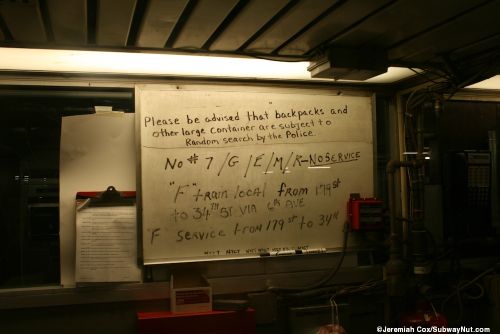 Please be advised that backpacks and
other large container are subject to
Random search by the Police.
No # 7/G/E/M/R-NO SERVICE
"F" train local from 179 st
to 34TH ST VIA 6th AVE
F service from 179 st to 34th
©Jeremiah Cox/SubwayNut.com